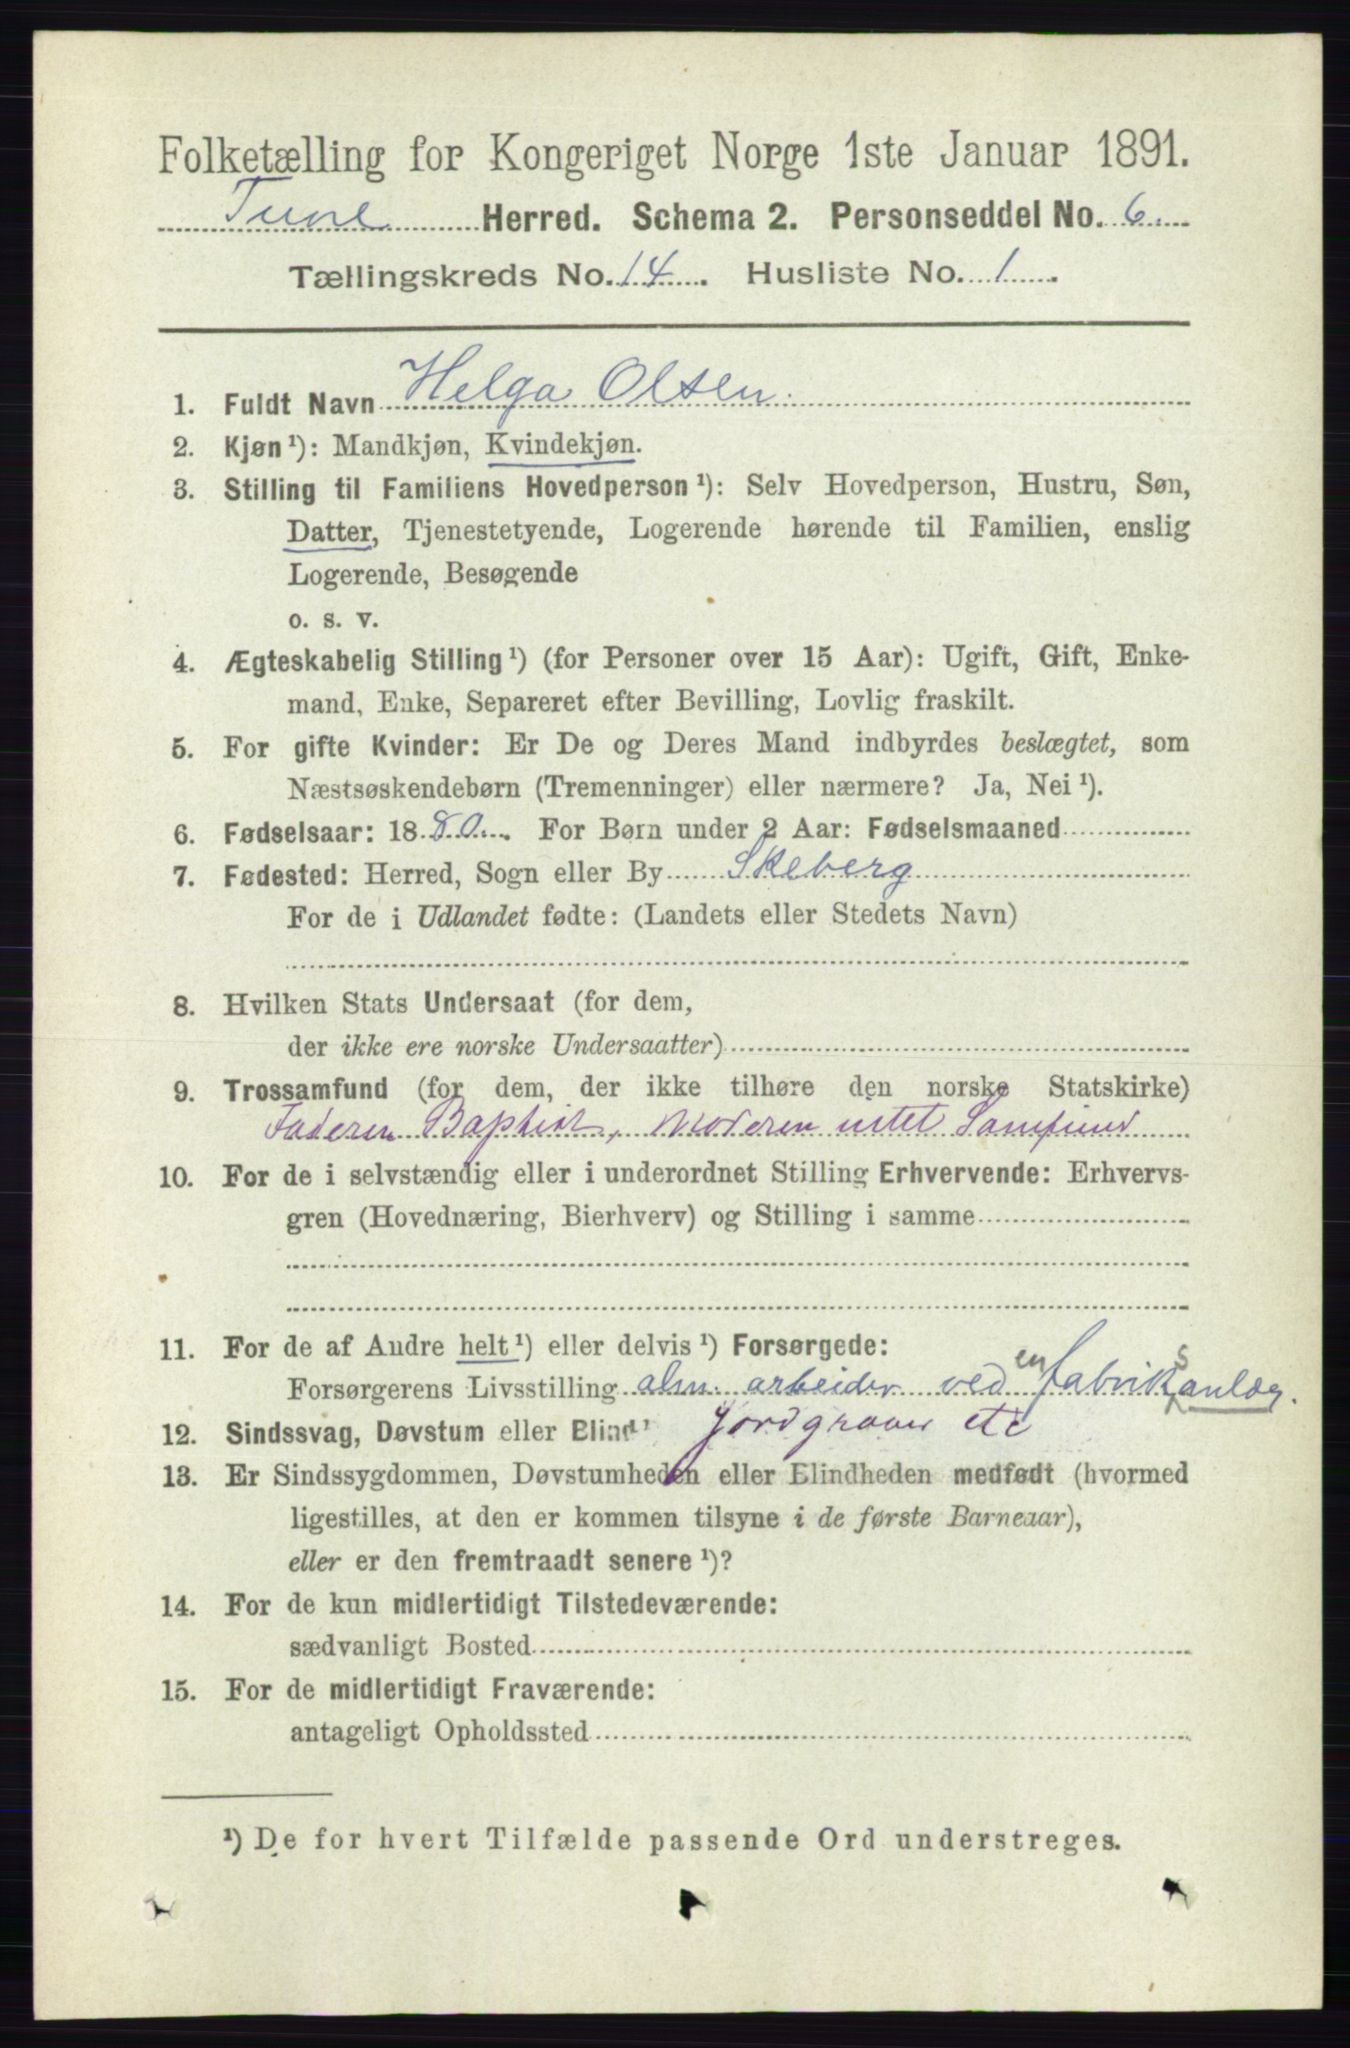 Folketælling for Kongeriget Norge 1ste Januar 1891.
Tune Herred. Schema 2. Personseddel No. 6.
Tællingskreds No. 14. Husliste No. 1.
1. Fuldt Navn Helga Olsen.
2. Kjøn¹): Mandkjøn, Kvindekjøn.
3. Stilling til Familiens Hovedperson¹): Selv Hovedperson, Hustru, Søn,
Datter, Tjenestetyende, Logerende hørende til Familien, enslig
Logerende, Besøgende
o. s. v.
4. Ægteskabelig Stilling¹) (for Personer over 15 Aar): Ugift, Gift, Enke-
mand, Enke, Separeret efter Bevilling, Lovlig fraskilt.
5. For gifte Kvinder: Er De og Deres Mand indbyrdes beslægtet, som
Næstsøskendebørn (Tremenninger) eller nærmere? Ja, Nei¹).
6. Fødselsaar: 1880. For Børn under 2 Aar: Fødselsmaaned
7. Fødested: Herred, Sogn eller By Skeberg
For de i Udlandet fødte: (Landets eller Stedets Navn)
8. Hvilken Stats Undersaat (for dem,
der ikke ere norske Undersaatter)
9. Trossamfund (for dem, der ikke tilhøre den norske Statskirke)
Faderen Baptist, Moderen intet Samfund
10. For de i selvstændig eller i underordnet Stilling Erhvervende: Erhvervs-
gren (Hovednæring, Bierhverv) og Stilling i samme
11. For de af Andre helt¹) eller delvis¹) Forsørgede:
Forsørgerens Livsstilling alm. arbeider ved en fabriksanlæg.
12. Sindssvag, Døvstum eller Blind¹ Jordgraver etc
13. Er Sindssygdommen, Døvstumheden eller Blindheden medfødt (hvormed
ligestilles, at den er kommen tilsyne i de første Barneaar),
eller er den fremtraadt senere¹)?
14. For de kun midlertidigt Tilstedeværende:
sædvanligt Bosted
15. For de midlertidigt Fraværende:
antageligt Opholdssted
¹) De for hvert Tilfælde passende Ord understreges.